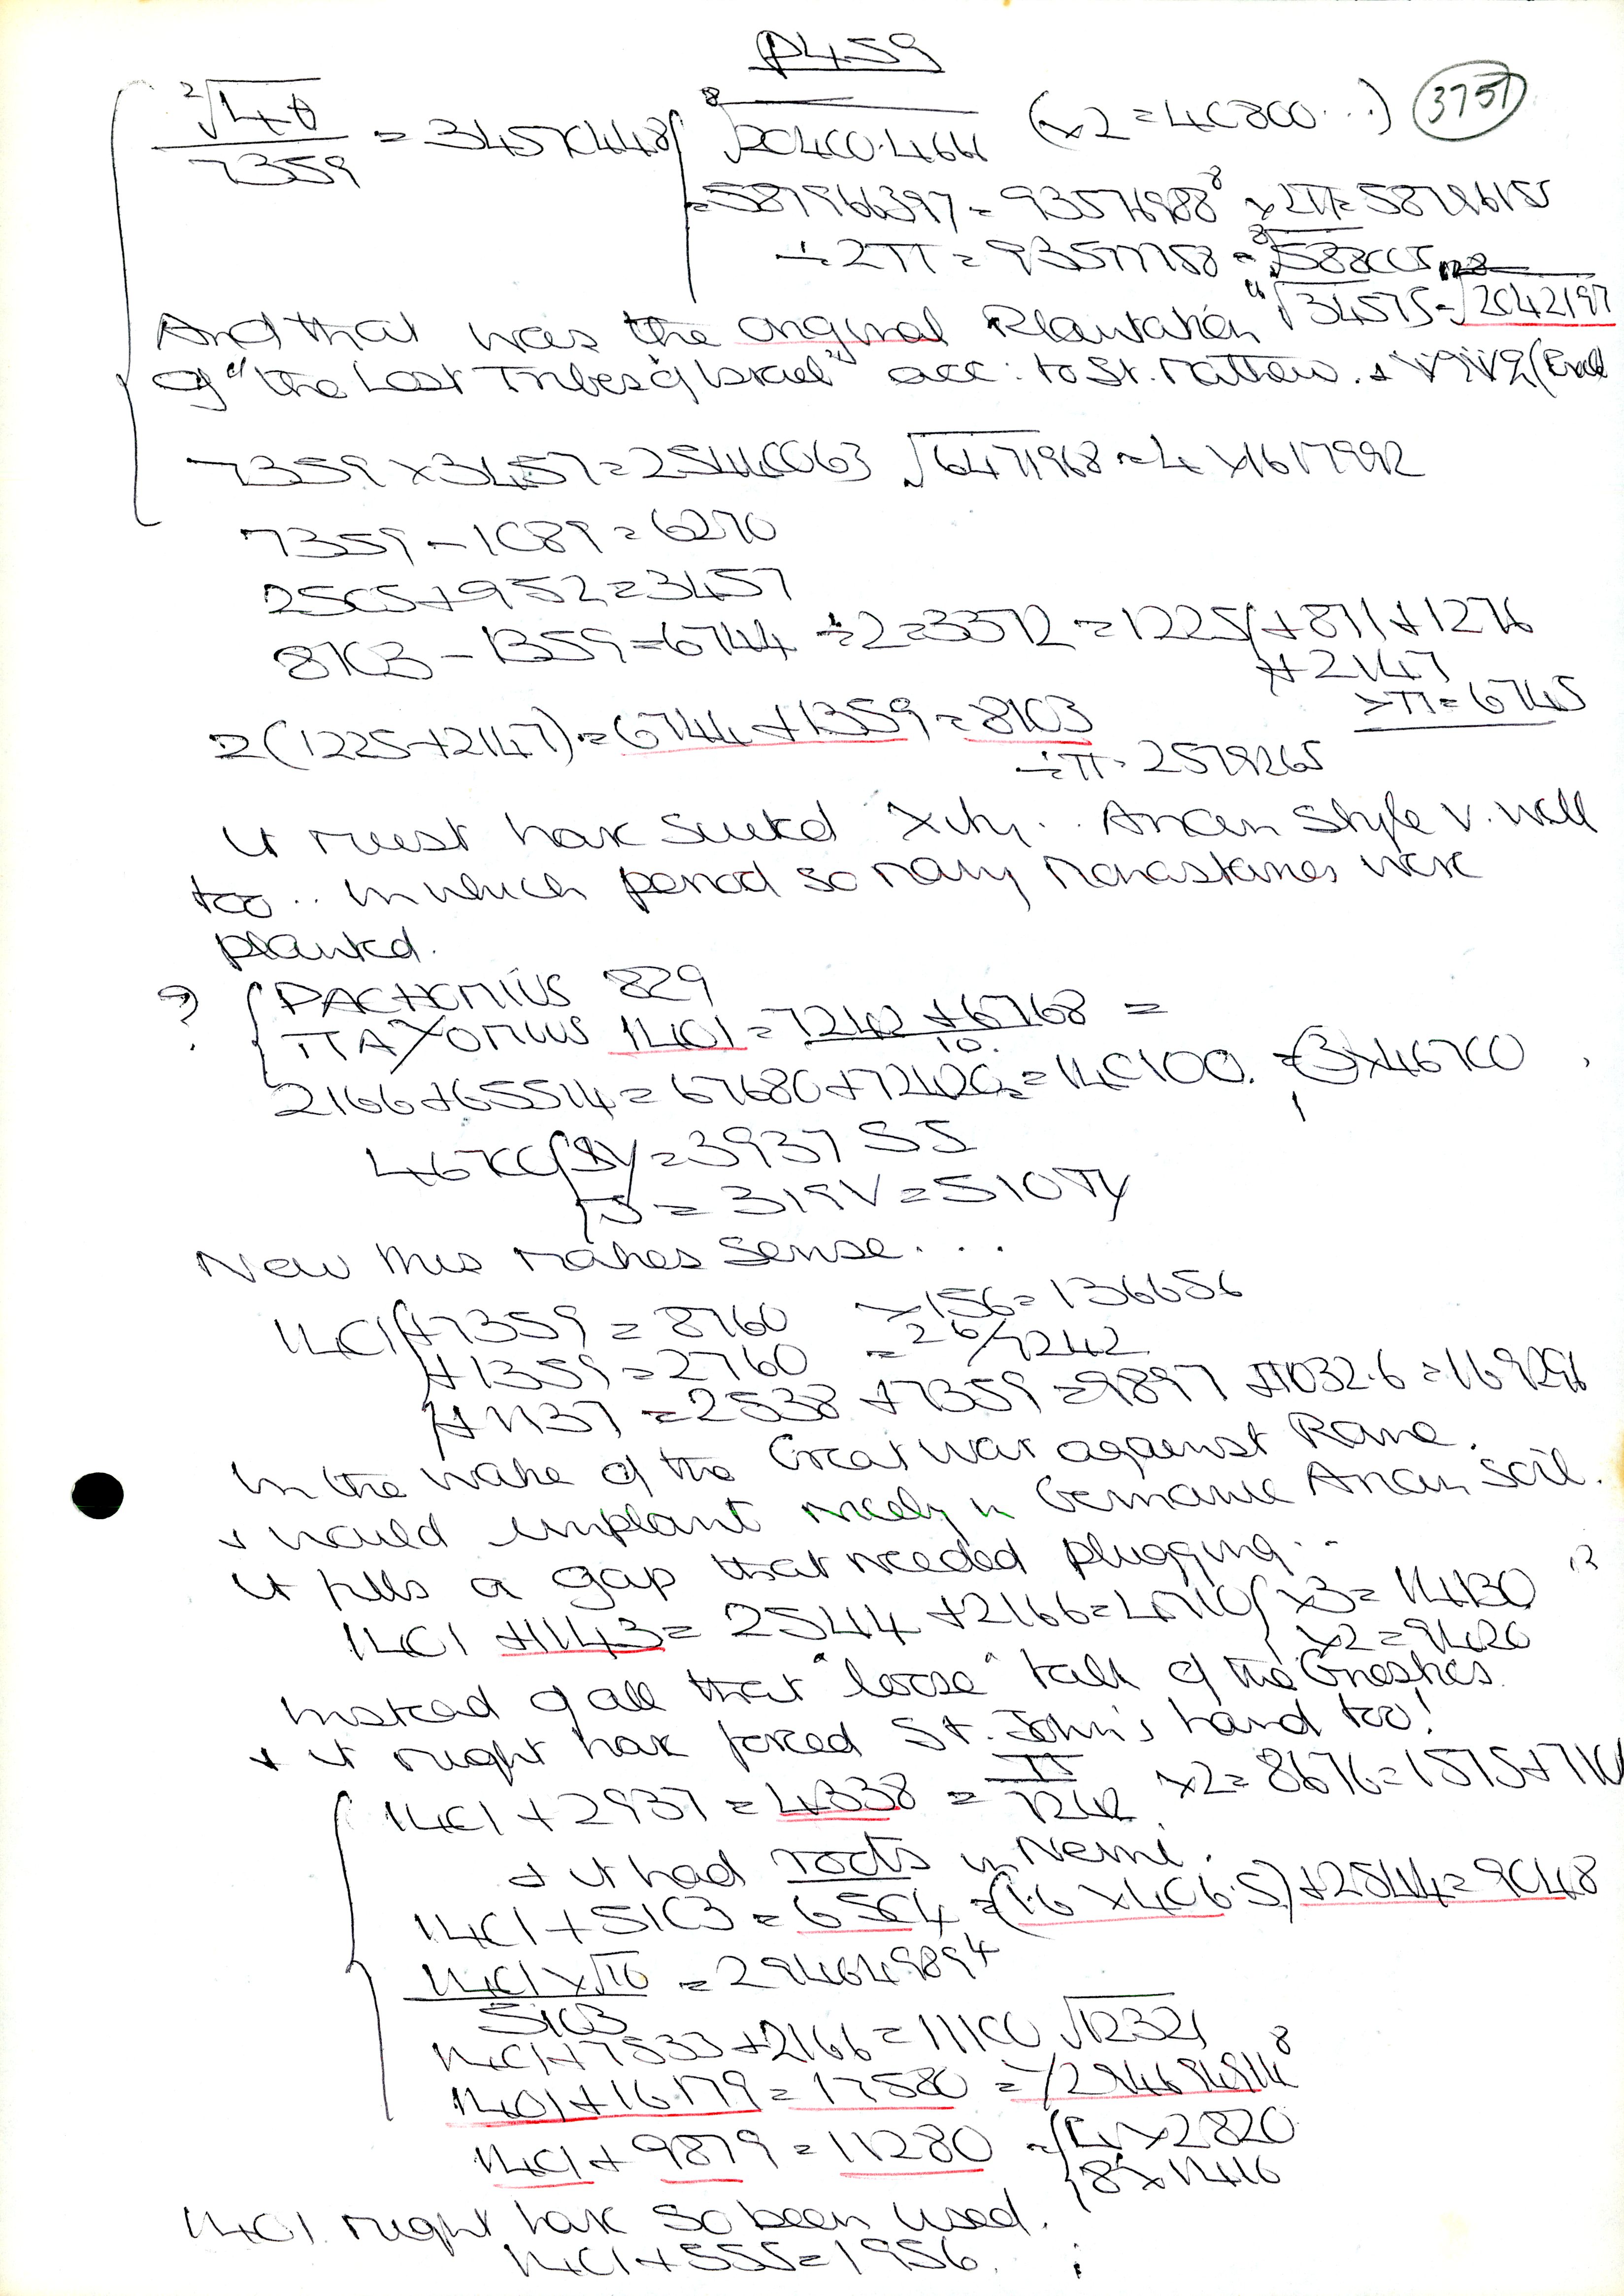 P459
3757
²√40 / 7359 = 34570448
⁸√20400.4661 (×2=40800...)
=587966397=93576988⁸ ×2π=58796155
÷2π = 93577758 =
And that was the original Plantation √34575=√2042197
of "the Lost Tribes of Israel" acc: to St. Matthew.
7359×3457=25440063 √6471968=4×1617992
7359-1089=6270
2505+952=3457
8103-1359=6744 ÷2=3372=1225+871+1276
+2147
×π=6745
2(1225+2147)=6744+1359=8103
÷π=2579265
It must have suited Xity.. Arian Style v. well
too.. in which period so many Monasteries were
planted.
? PACHOMIUS 829
ΠΑΧΟΜΙUS 1401=7242+6768=
10.
2166+65514=67680+72420=140100.=3×46700
46700
=3937
=319V=510
Now this makes Sense...
1401+7359=8760 ×156=136656
+1359=2760 =26/7242
+1137=2538+7359=9897+7032.6=169296
In the wake of the Great War against Rome.
+ would implant nicely in Germanic Arian Soil.
It fills a gap that needed plugging..
1401+1143=2544+2166=4710 ×3=14130
×2=9420
Instead of all that "loose" talk of the Gnostics
+ it might have forced St. John's hand too!
1401+2937=4338=π/7242 ×2=8676=1575+710
+ it had roots in Nemi.
1401+5103=6504=(1.6×406.5)+2544=9048
1401×√10 / 5103 = 294649894
1401+7533+2166=11100 √12321
1401+16179=17580=√294694914⁸
1401+9879=11280 = 4×2820
8×1410
1401 might have so been used.
1401+555=1956.